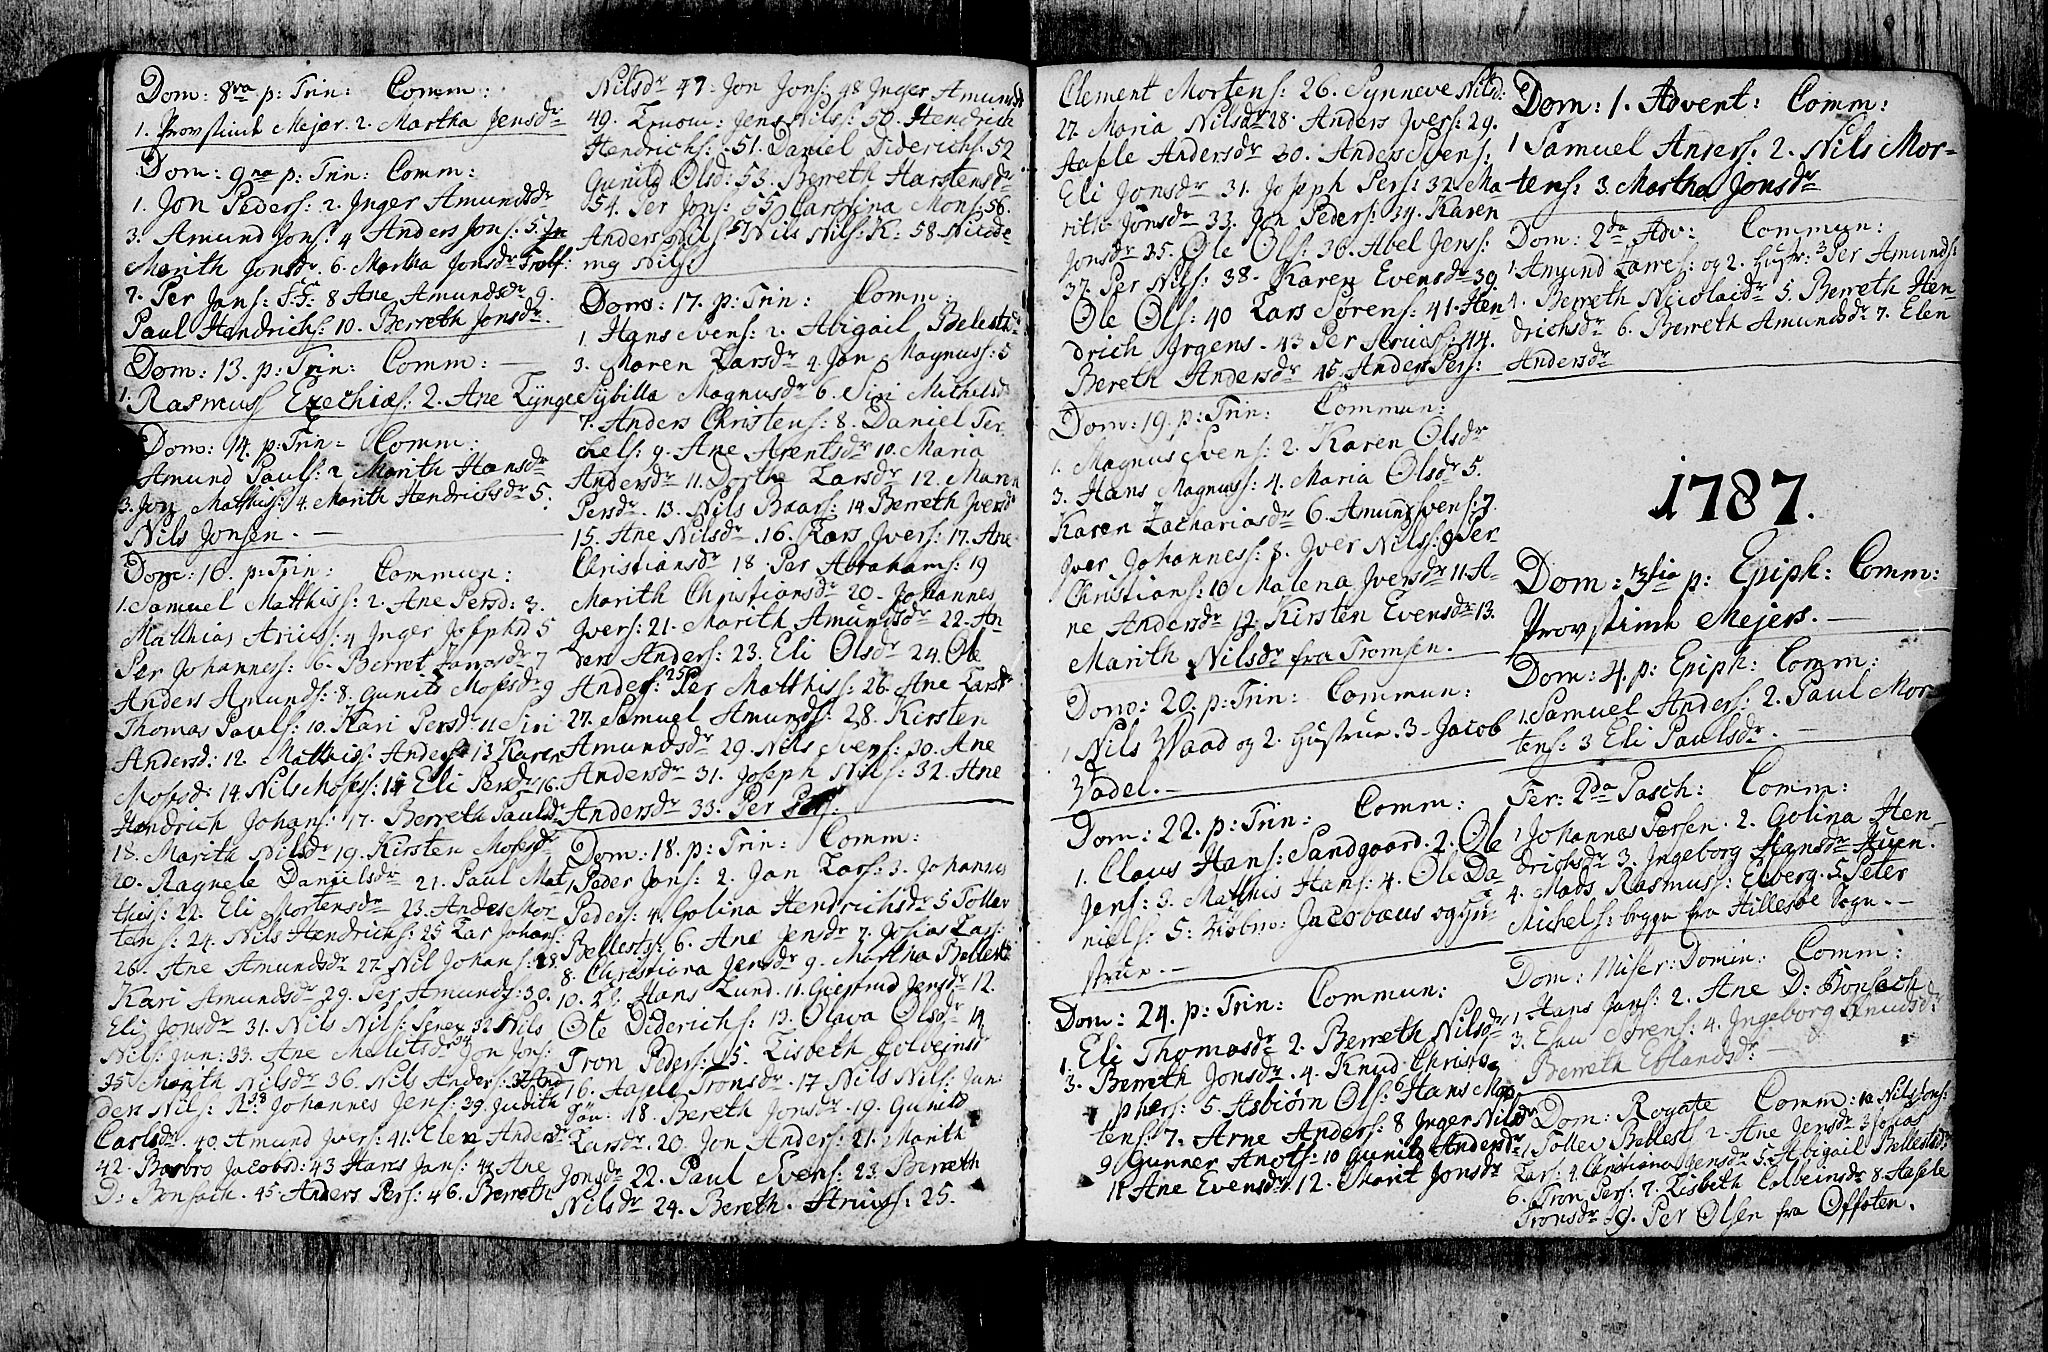 Dom: 8va p: Trin: Comm:
1. Provstinde Mejer. 2. Martha Jensdr
Dom: 9na p: Trin: Comm:
1. Jon Peders: 2. Inger Amundsdr
3. Amund Jons: 4 Anders Jons: 5.
Marith Jonsdr. 6. Martha Jonsdr
7. Per Jans: 8 Ane Amundsdr 9.
Paul Hendrichs: 10. Berreth Jonsdr.
Dom: 13. p: Trin: Comm:
1. Rasmuss Ezechias: 2. Ane Lynge
Dom: 14. p: Trin: Comm:
Amund Pauls: 2 Marith Hansdr
3. Jon Mathis: 4. Marith Hendrichsdr 5.
Nils Jonsen.
Dom: 16. p: Trin: Commun:
1. Samuel Matthiss: 2. Ane Persd: 3.
Matthias Arius: 4 Inger Josephd 5
Per Johannes: 6. Berret Larsdr 7
Anders Amunds: 8. Gunild Mosesdr 9
Thomas Pauls: 10. Kari Persdr 11 Siri
Andersd: 12. Mathis: Anders: 13 Karen
Mosesd: 14. Nils Moses: 15 Eli Persdr 16.
Hendrich Johans: 17. Berreth Paulsdr
18. Marith Nilsdr 19. Kirsten Mosesdr
20. Ragnele Danielsdr 21. Paul Mat
thiss: 22. Eli Mortensdr 23. Anders Mor
tens: 24. Nils Hendrichs: 25 Lar Johans:
26. Ane Amundsdr 27. Nil Johans: 28.
Kari Amundsdr 29. Per Amunds: 30.
Eli Jonsdr 31. Nils Nils: Senex 32 Nils
Nils: Jun: 33. Ane 34 Jon Jons:
35 Marith Nilsdr 36. Nils Anders: 37 An
ders Nils: 38 Johannes Jens: 39. Judith
Carlsdr. 40. Amund Ivers: 41. Elen Andersdr
42. Barbro Jacobsd: 43 Hans Jans: 44 Ane
D: Bonsach. 45. Anders Pers: 46. Berreth
Nilsdr 47. Jon Jons: 48 Inger Amunsd
49. Jens Nils: 50. Hendrich
Hendrichs: 51. Daniel Diderichs: 52
Gunild Olsd: 53. Berreth Harstensdr
54. Per Jons: 55 Carolina Mons: 56.
Anders Nils: 57 Nils Nils: K: 58
Dom: 17. p: Trin: Comm:
1. Hans Svens: 2. Abigail Belestdr
3. Maren Larsdr 4. Jon Magnuss: 5
Sybilla Magnusdr 6. Siri Michelsdr
7. Anders Christens: 8. Daniel Ter
chels: 9. Ane Arentsdr 10. Maria
Andersdr 11. Dorthe Larsdr 12. Maren
Persdr. 13. Nils Baars: 14 Berreth Iversd
15. Ane Nilsdr. 16. Lars Ivers: 17. Ane
Christiansdr 18. Per Abrahams: 19
Marith Christiansdr 20. Johannes
Ivers: 21. Marith Amundsdr 22. An
ders Anders: 23. Eli Olsdr 24. Ole
Anders: 25 Per Matthis: 26. Ane Larsdr
27. Samuel Amunds: 28. Kirsten
Amundsdr 29. Nils Svens: 30. Ane
Andersdr 31. Joseph Nils: 32. Ane
Andersdr 33. Per Pers:
Dom: 18. p: Trin: Comm:
1. Peder Jons: 2. Jon Lars: 3. Johannes
Peders: 4. Golina Hendrichsdr 5 Toller
Bellests: 6. Ane Jensdr 7. Josias Lars:
8. Christiana Jensdr 9. Martha Bellestd
10. Hans Lund. 11. Giertrud Jensdr 12.
Ole Diderichs: 13. Olava Olsdr 14
Tron Peders: 15. Lisbeth Colbeinsd
16. Aasele Tronsdr. 17 Nils Nils: Jun:
18. Bereth Jonsdr. 19. Gunild
Larsdr. 20. Jon Anders: 21. Marith
Jonsdr 22. Paul Svens: 23. Berreth
Nilsdr 24. Bereth. Ariuss: 25.
Clement Mortens: 26. Synneve Nilsd:
27. Maria Nilsdr 28. Anders Ivers: 29.
Aasele Andersdr 30. Anders Svens:
Eli Jonsdr 31. Joseph Pers: 32. Ma
rith Jonsdr 33. Jon Peders: 34. Karen
Jonsdr 35. Ole Ols: 36. Abel Jens:
37. Per Nils: 38. Karen Evensdr 39
Ole Ols: 40 Lars Sørens: 41. Hen
drich Jrgens. 43 Per Ariuss: 44.
Bereth Andersdr 45. Anders Pers:
Dom: 19. p: Trin: Commun:
1. Magnus Svens: 2. Karen Olsdr
3. Hans Magnuss: 4. Maria Olsdr 5.
Karen Zachariasdr 6. Amund Svens: 7.
Iver Johanness: 8. Iver Nils: 9 Per
Christians: 10 Malena Iversdr 11. A-
ne Andersdr 12. Kirsten Evensdr 13.
Marith Nilsdr fra Tromsen.
Dom: 20. p: Trin: Commun:
1 Nils Waad og 2. Hustrue. 3. Jacob
Vadel.
Dom: 22. p: Trin: Comm:
1. Claus Hans: Sandgaard. 2. Ole
Jens: 3. Matthis Hans: 4. Ole Da
niels: 5: Jacobæus og Hu-
strue.
Dom: 24. p: Trin: Commun:
1. Eli Thomasdr 2. Berreth Nilsdr
3. Berreth Jonsdr. 4. Knud Christo
phers: 5. Asbiørn Ols: 6 Hans Mor
tens: 7. Arne Anders: 8 Inger Nilsdr
9 Gunner Anots: 10 Gunild Andersdr
11 Ane Evensdr 12. Marit Jonsdr
Dom: 1. Advent: Comm:
1 Samuel Anders: 2. Nils Mor-
tens: 3. Martha Jonsdr
Dom: 2da Adv: Commun:
1 Amund Larss: og 2. Hustr: 3 Per Amunds:
4. Berreth Nicolaidr 5. Berreth Hen-
drichsdr 6. Berreth Amundsdr 7. Elen
Andersdr
1787.
Dom: 3tia p: Epiph: Comm:
Provstinde Mejers.
Dom: 4. p: Epiph: Comm:
1. Samuel Anders: 2. Paul Mor-
tens: 3 Eli Paulsdr.
Fer: 2da Pasch: Comm:
1 Johannes Persen. 2. Golina Hen-
drichsdr 3. Ingeborg Hansdr
4. Mads Rasmuss: Elberg. 5. Peter
Michels: begge fra Hillesøe Sogn.
Dom: Miser: Domin: Comm:
1 Hans Jans: 2. Ane D: Bonsach
3. Sørens: 4. Ingeborg Knudsdr
Berreth
Dom: Rogate Comm: 10 Nils Jons:
1. Toller Bellest: 2. Ane Jensdr 3 Josias
Lars: 4. Christiana Jensdr 5. Abigail Bellestdr
6. Tron Pers: 7. Lisbeth Colbeinsdr 8. Aasele
Tronsdr 9. Per Olsen fra Offsten.